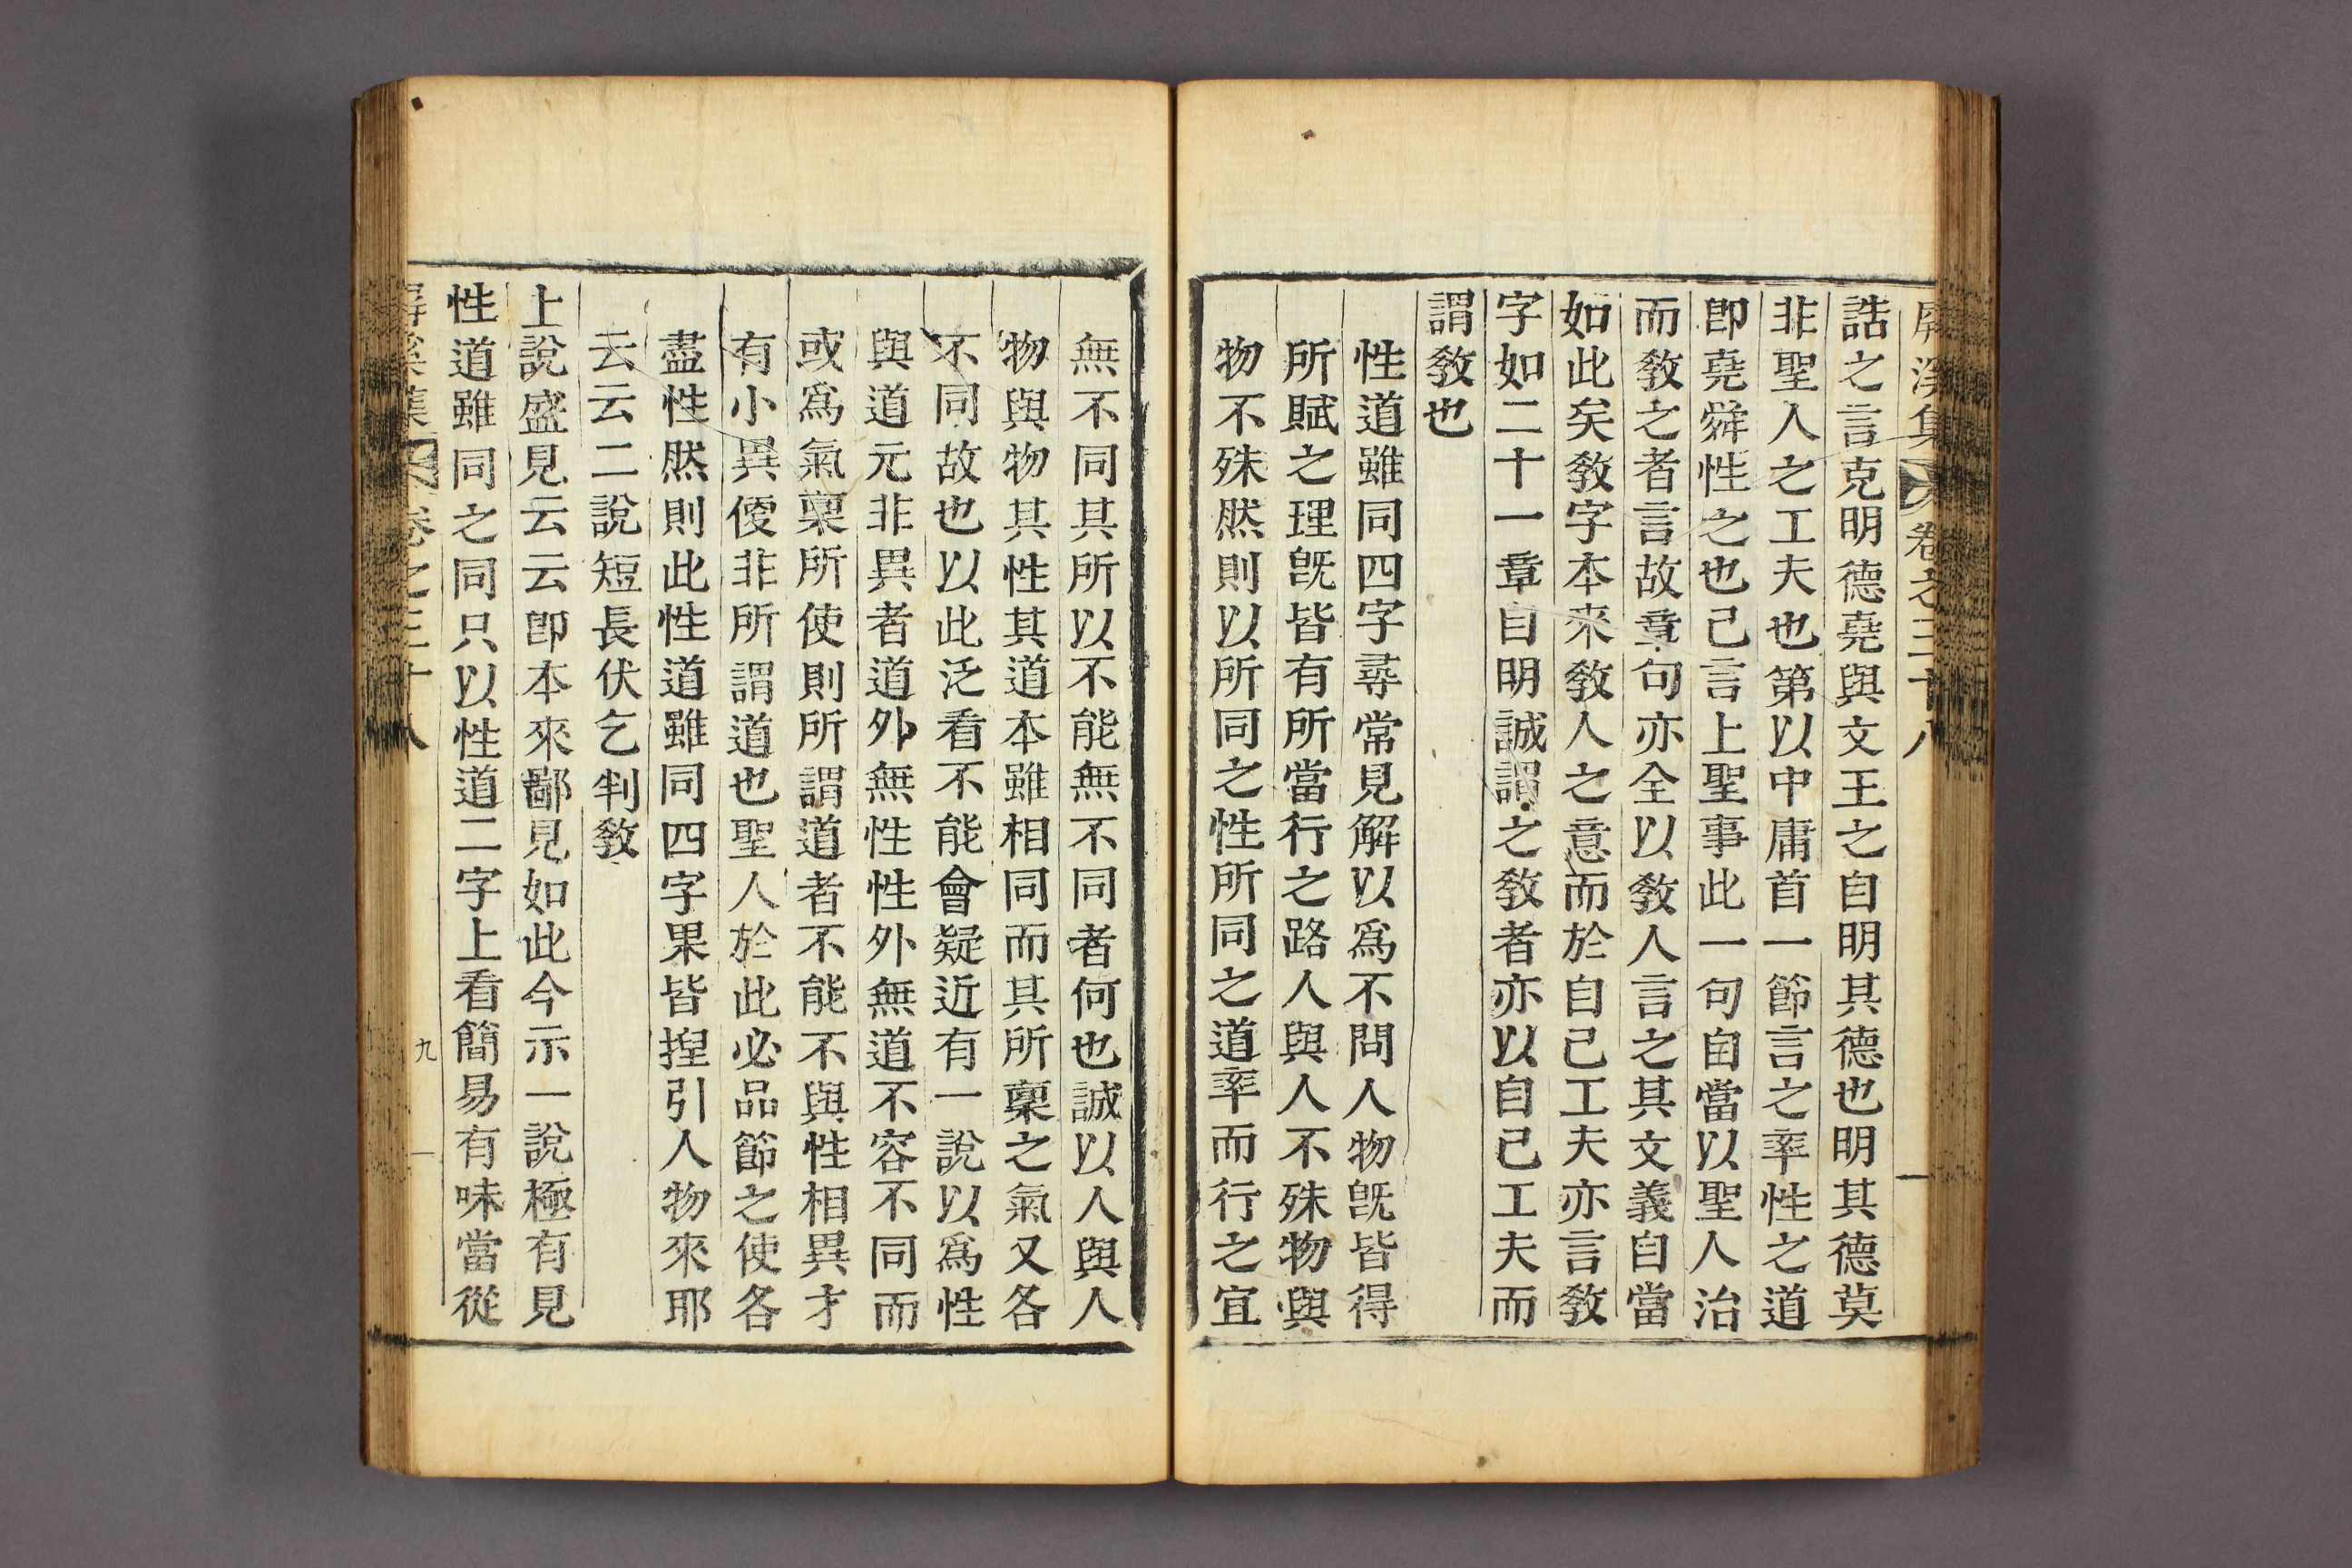 屛溪集 卷之三十八
誥之言克明德堯與文王之自明其德也明其德莫
非聖人之工夫也第以中庸首一節言之率性之道
卽堯舜性之也已言上聖事此一句自當以聖人治
而敎之者言故章句亦全以敎人言之其文義自當
如此矣敎字本來敎人之意而於自己工夫亦言敎
字如二十一章自明誠謂之敎者亦以自己工夫而
謂敎也
性道雖同四字尋常見解以爲不問人物旣皆得
所賦之理旣皆有所當行之路人與人不殊物與
物不殊然則以所同之性所同之道率而行之宜
無不同其所以不能無不同者何也誠以人與人
物與物其性其道本雖相同而其所稟之氣又各
不同故也以此泛看不能會疑近有一說以爲性
與道元非異者道外無性性外無道不容不同而
或爲氣稟所使則所謂道者不能不與性相異才
有小異便非所謂道也聖人於此必品節之使各
盡性然則此性道雖同四字果皆揑引人物來耶
云云二說短長伏乞判敎
上說盛見云云卽本來鄙見如此今示一說極有見
性道雖同之同只以性道二字上看簡易有味當從
屛溪集 卷之三十八 九